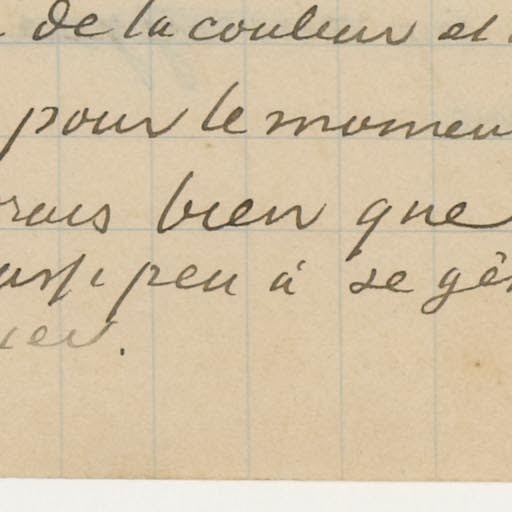 de la couleur et
pour le momen
rais bien que
aussi peu à se gên
ier.